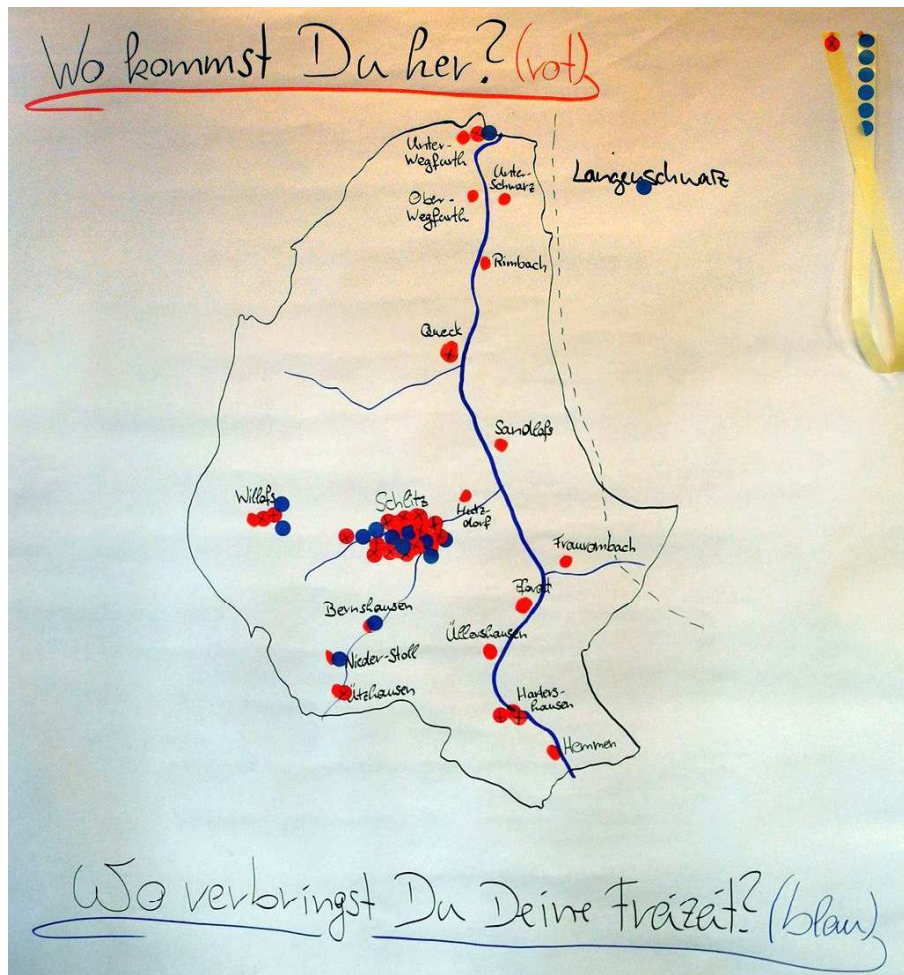 Wo kommst Du her? (rot)
Unter-
Wegfurth
Unter-
Schwarz
Langenschwarz
Ober-
Wegfurth
Rimbach
Queck
Sandlofs
Willofs
Schlitz
Hutz-
dorf
Fraurombach
Pfordt
Bernshausen
Üllershausen
Nieder-Stoll
Ützhausen
Harters-
hausen
Hemmen
Wo verbringst Du Deine Freizeit? (blau)